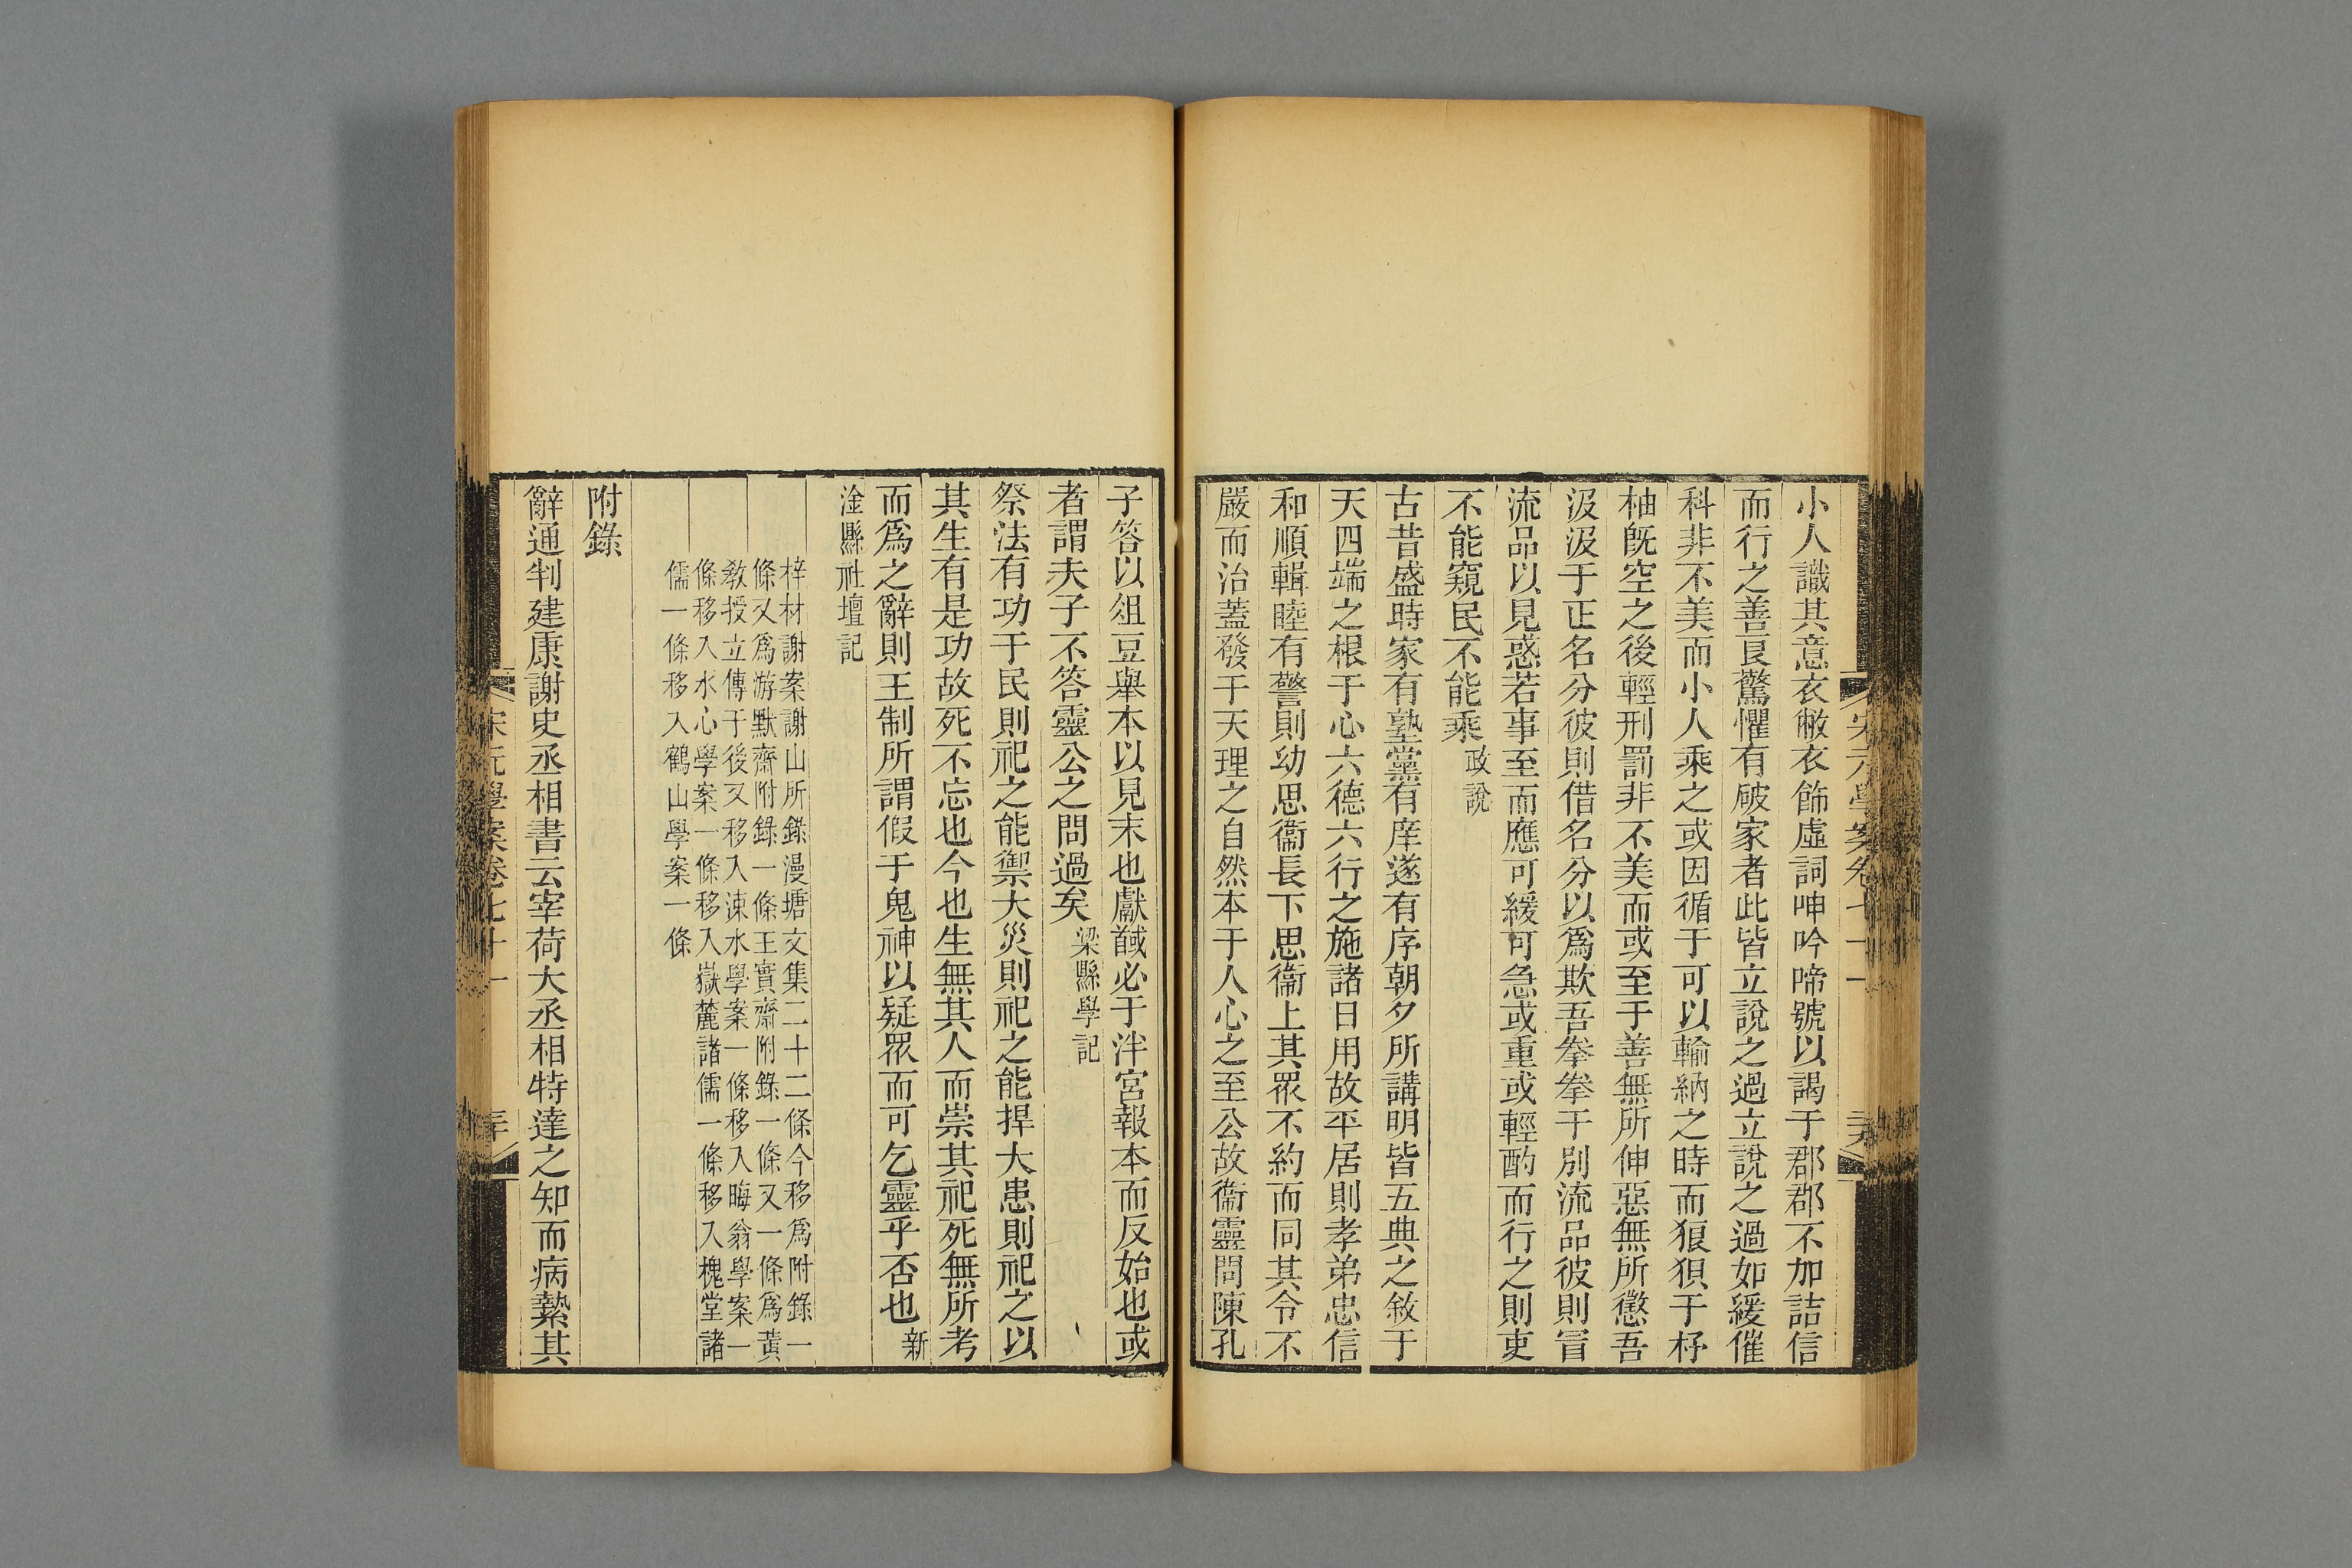 小人識其意衣敝衣飾虛詞呻吟啼號以謁于郡郡不加詰信
而行之善良驚懼有破家者此皆立說之過立說之過如緩催
科非不美而小人乘之或因循于可以輸納之時而狼狽于杼
柚旣空之後輕刑罰非不美而或至于善無所伸惡無所懲吾
汲汲于正名分彼則借名分以爲欺吾拳拳于別流品彼則冒
流品以見惑若事至而應可緩可急或重或輕酌而行之則吏
不能窺民不能乘政說
古昔盛時家有塾黨有庠遂有序朝夕所講明皆五典之敘于
天四端之根于心六德六行之施諸日用故平居則孝弟忠信
和順輯睦有警則幼思衞長下思衞上其眾不約而同其令不
嚴而治蓋發于天理之自然本于人心之至公故衞靈問陳孔
子答以俎豆舉本以見末也獻馘必于泮宮報本而反始也或
者謂夫子不答靈公之問過矣梁縣學記
祭法有功于民則祀之能禦大災則祀之能捍大患則祀之以
其生有是功故死不忘也今也生無其人而崇其祀死無所考
而爲之辭則王制所謂假于鬼神以疑眾而可乞靈乎否也新
淦縣社壇記
梓材謝案謝山所錄漫塘文集二十二條今移爲附錄一
條又爲游默齋附錄一條王實齋附錄一條又一條爲黃
敎授立傳于後又移入涑水學案一條移入晦翁學案一
條移入水心學案一條移入嶽麓諸儒一條移入槐堂諸
儒一條移入鶴山學案一條
附錄
辭通判建康謝史丞相書云宰荷大丞相特達之知而病縶其
宋元學案卷七十一